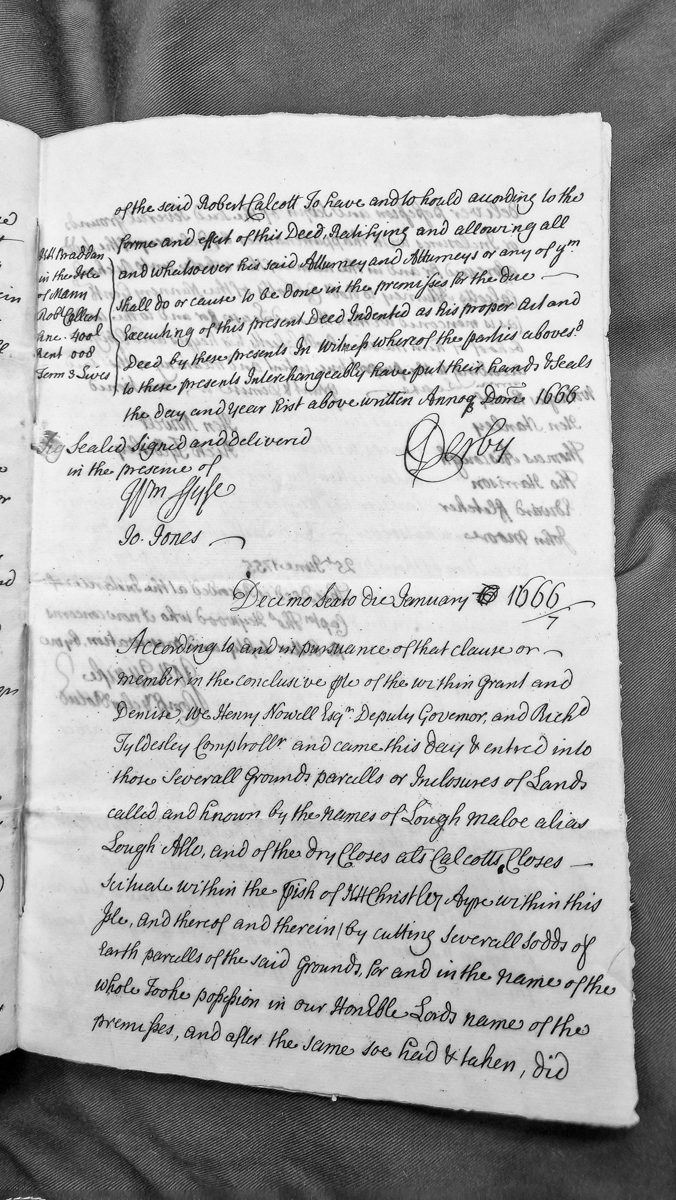 of the said Robert Calcott To have and to hould according to the
forme and effect of this Deed, Ratifying and allowing all
and whatsoever his said Atturney and Atturneys or any of ym
shall do or cause to be done in the premisses for the due
Executing of this present Deed Indented as his proper Act and
Deed by these presents In Witness whereof the parties aboves.d
to these presents Interchangeably have put their hands & Seals
the day and year first above written Annoq Dom 1666
KK Braddan
in the Isle
of Mann
Robt Calcot
fine - 400l
Rent 008
Term 3 Lives
Derby
Sealed signed and deliverd
in the presence of
Wm
Jo. Jones
Decimo Sexto die January 1666/7
According to and in pursuance of that clause or
member in the conclusive ple of the within Grant and
Demise, We Henry Nowell Esqr Deputy Governor, and Richd
Tyldesley Comptrollr and came this day & entred into
those Severall Grounds parcells or Inclosures of Lands
called and known by the names of Lough maloe alias
Lough Allo, and of the dry Closes als Calcotts Closes
Scituate within the pish of KK Christ Ley Ayre within this
Isle, and thereof and therein (by cutting Severall Sodds of
Earth parcells of the said Grounds, for and in the name of the
whole Tooke possession in our Honlble Lords name of the
premisses, and after the same soe had & taken, did